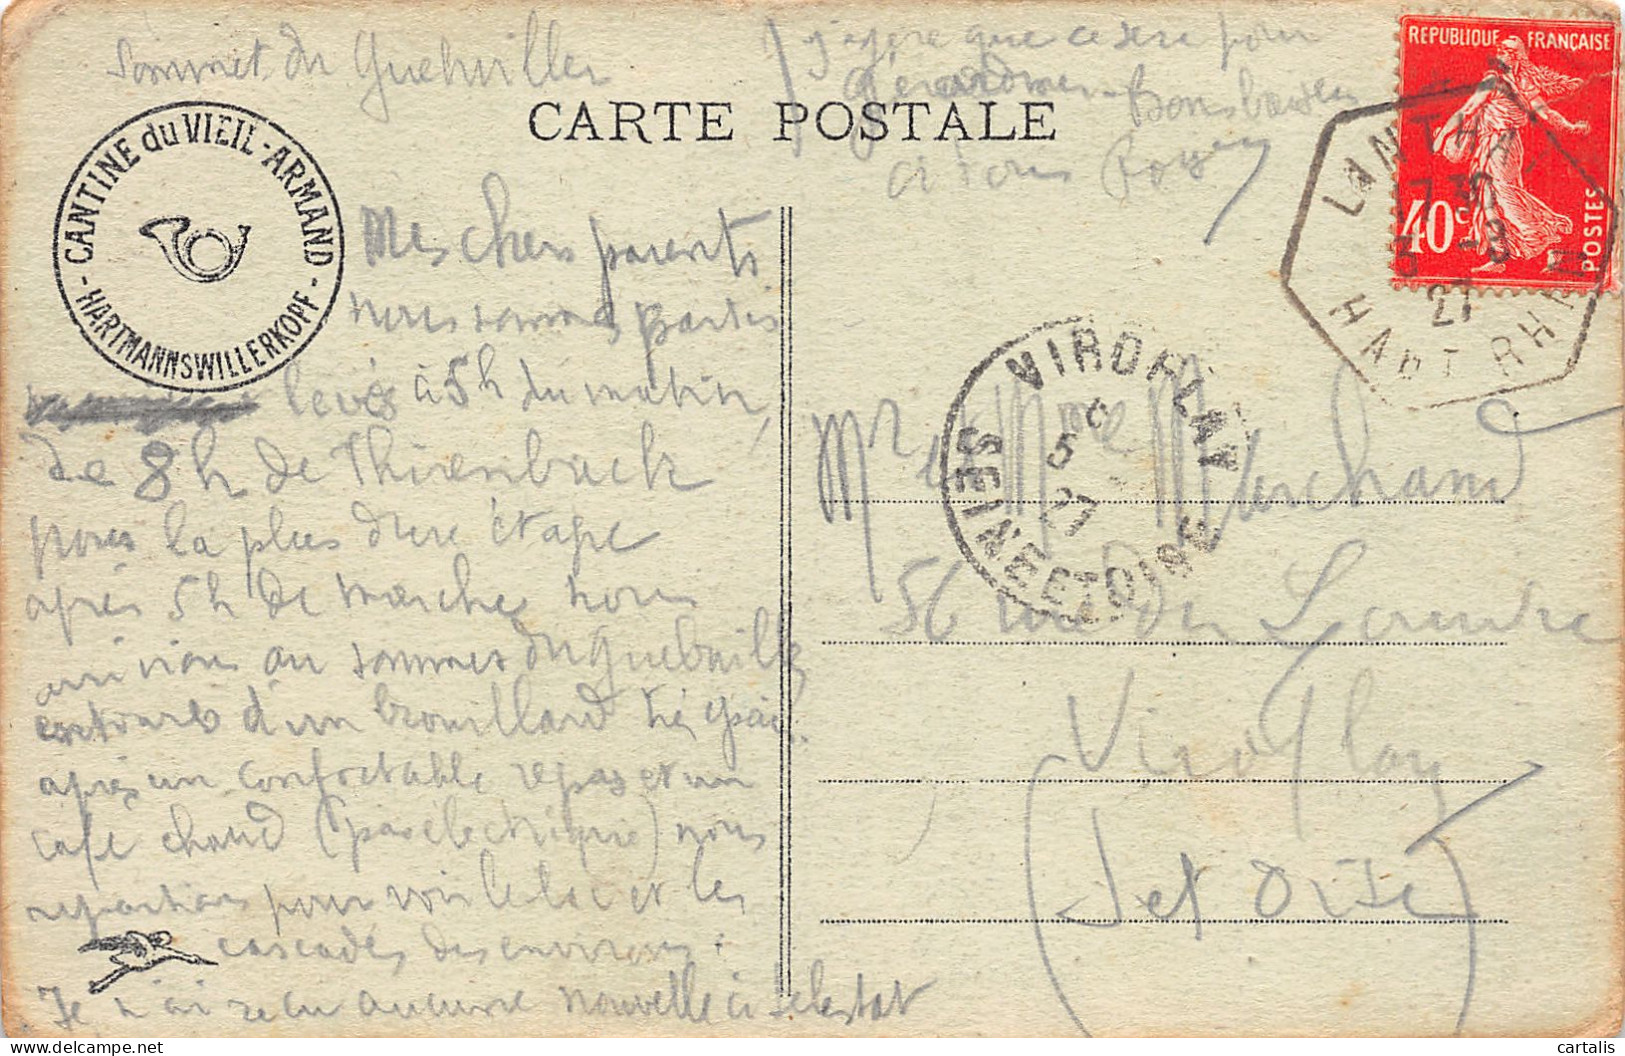 Sommet du Guehviller
j'espère que ce sera pour
Gérardmer. Bons baisers
à tous Roger
CARTE POSTALE
- CANTINE du VIEIL-ARMAND -
HARTMANNSWILLERKOPF
REPUBLIQUE FRANÇAISE
40c
POSTES
HAUT RHIN
17 30
3 -8
27
VIROFLAY
5 8
27
SEINE ET OISE
Mes chers parents
nous sommes partis
levés à 5h du matin,
de 8h de Thierenbach
pour la plus dure étape
après 5h de marche nous
arrivions au sommet du Guebwiller
entourés d'un brouillard
après un confortable repas et un
café chaud (pas électrique) nous
repartions pour voir le lac et les
cascades des environs.
Je n'ai reçu aucune nouvelle à Selestat
Mr et Mme Marchand
56 rue du Louvre
Viroflay
(S et Oise)
cartalis
delcampe.net